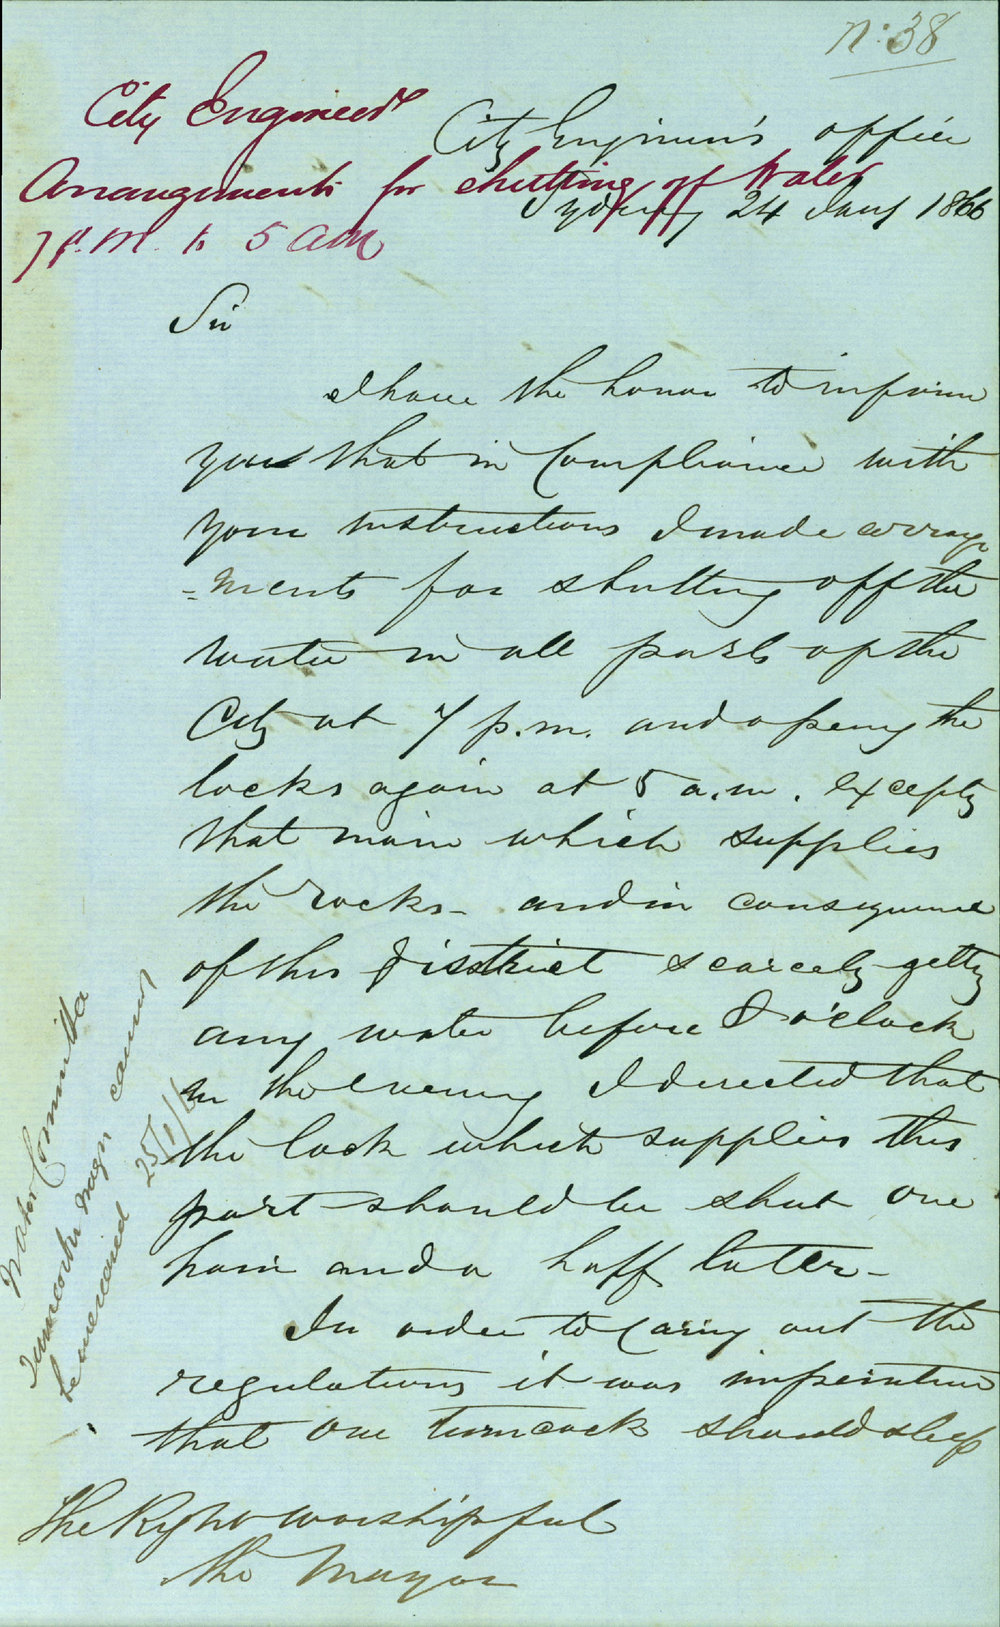 No: 38
City Engineer
Arrangements for shutting off Water
7 p.m. to 5 am
City Engineer's office
Sydney 24 Jany 1866
Sir
I have the honor to inform
you that in Compliance with
your instructions I made arrange
=ments for shutting off the
water in all parts of the
City at 7 p.m. and opening the
locks again at 5 a.m. excepting
that main which supplies
the rocks - and in consequence
of this district scarcely getting
any water before 8 o'clock
in the evening I directed that
the lock which supplies this
part should be shut one
hour and a half later -
In order to Carry out the
regulations it was imperative
that one turncock should sleep
The Right Worshipful
the Mayor
Water Committee
Turncocks wages cannot
be increased 25/1/6